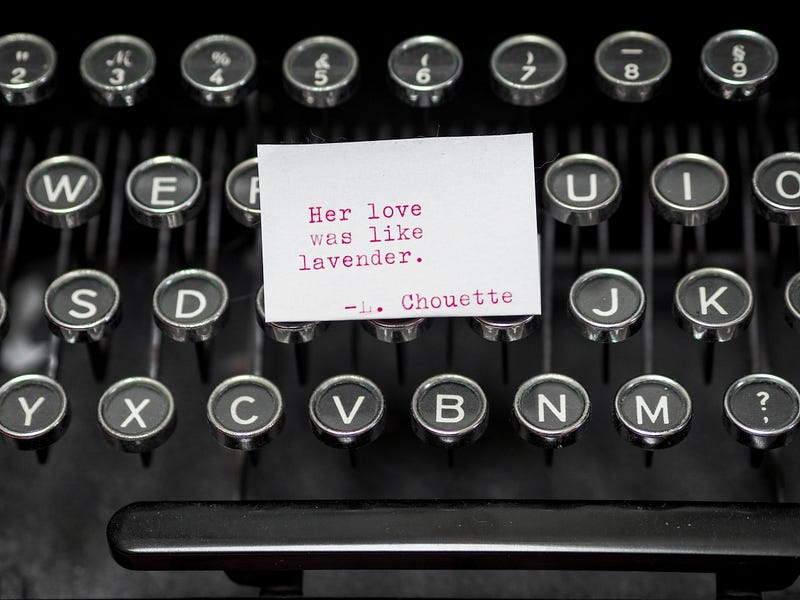 " 2 3 % 4 & 5 ( 6 ) 7 — 8 § 9
W E U I O
Her love
was like
lavender.
-L. Chouette
S D J K
Y X C V B N M ? ;